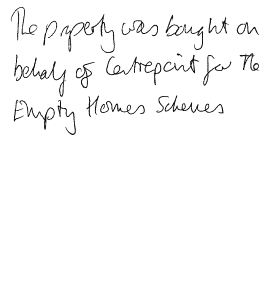 The property was bought on
behalf of Centrepoint for the
Empty Homes Schemes